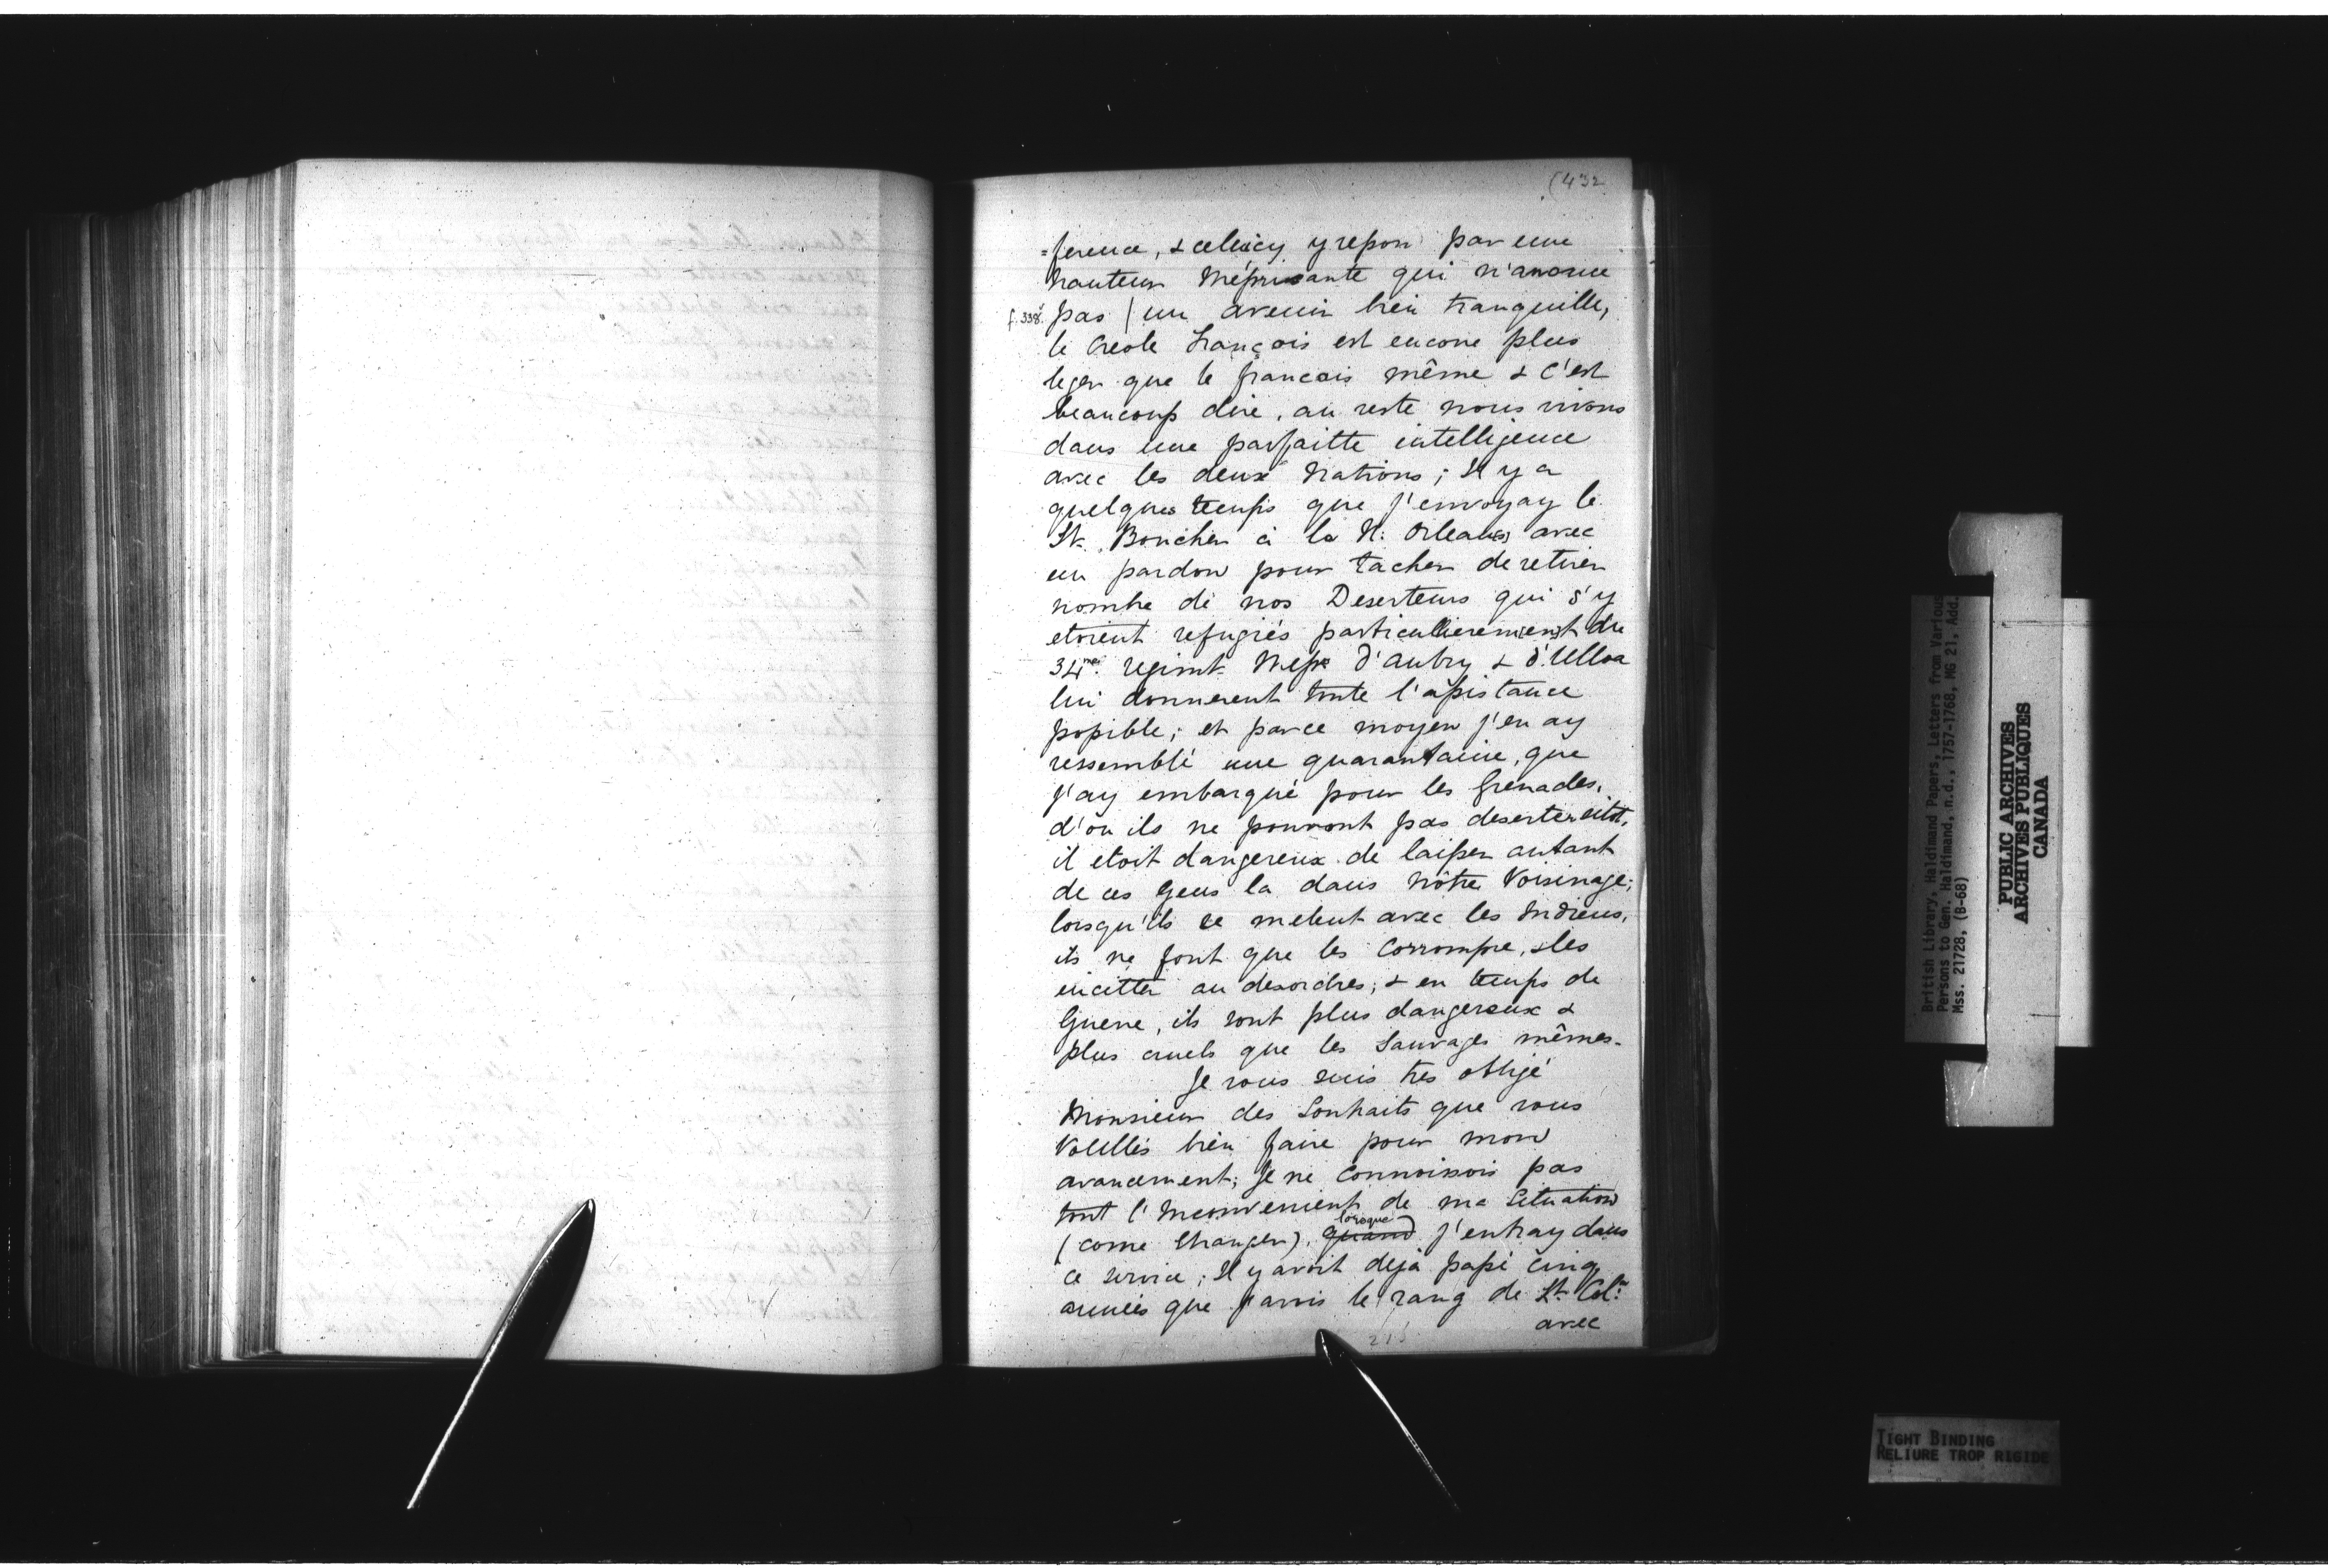 (432
=ference, & celuicy y repon par une
hauteur Méprisante qui n'anonce
f. 338v. pas / un avenir bien tranquille,
le Creole François est encore plus
leger que le francois même & C'est
beaucoup dire, au reste nous vivons
dans une parfaitte intelligence
avec les deux Nations; Il y a
quelques temps que j'envoyay le
Sr. Boucher à la N: Orleans avec
un pardon pour tacher de retirer
nombre de nos Deserteurs qui s'y
etoient refugiés particullierement du
34me. regimt. Messrs d'Aubry & d'Ulloa
lui donnerent toute l'assistance
possible; et par ce moyen j'en ay
ressemblé une quarantaine, que
j'ay embarqué pour les Grenades,
d'ou ils ne pouront pas deserter sitot,
il etoit dangereux de laisser autant
de ces Gens la dans Nôtre Voisinage;
lorsqu'ils se melent avec les Indiens,
ils ne font que les Corrompre, & les
incitter au desordres; & en temps de
Guerre, ils sont plus dangereux &
plus cruels que les Sauvages mêmes.
Je vous suis tres obligé
Monsieur des Souhaits que vous
Voulles bien faire pour mon
avancement; Je ne Connoissois pas
tout l'Inconvenient de ma Situation
(come Etranger), quand lorsque j'entray dans
ce service; Il y avoit deja passé Cinq
années que j'avois le rang de Lt. Col:
avec
215
British Library, Haldimand Papers, Letters from Various
Persons to Gen. Haldimand, n.d., 1757-1768, MG 21, Add.
Mss. 21728, (B-68)
PUBLIC ARCHIVES
ARCHIVES PUBLIQUES
CANADA
TIGHT BINDING
RELIURE TROP RIGIDE